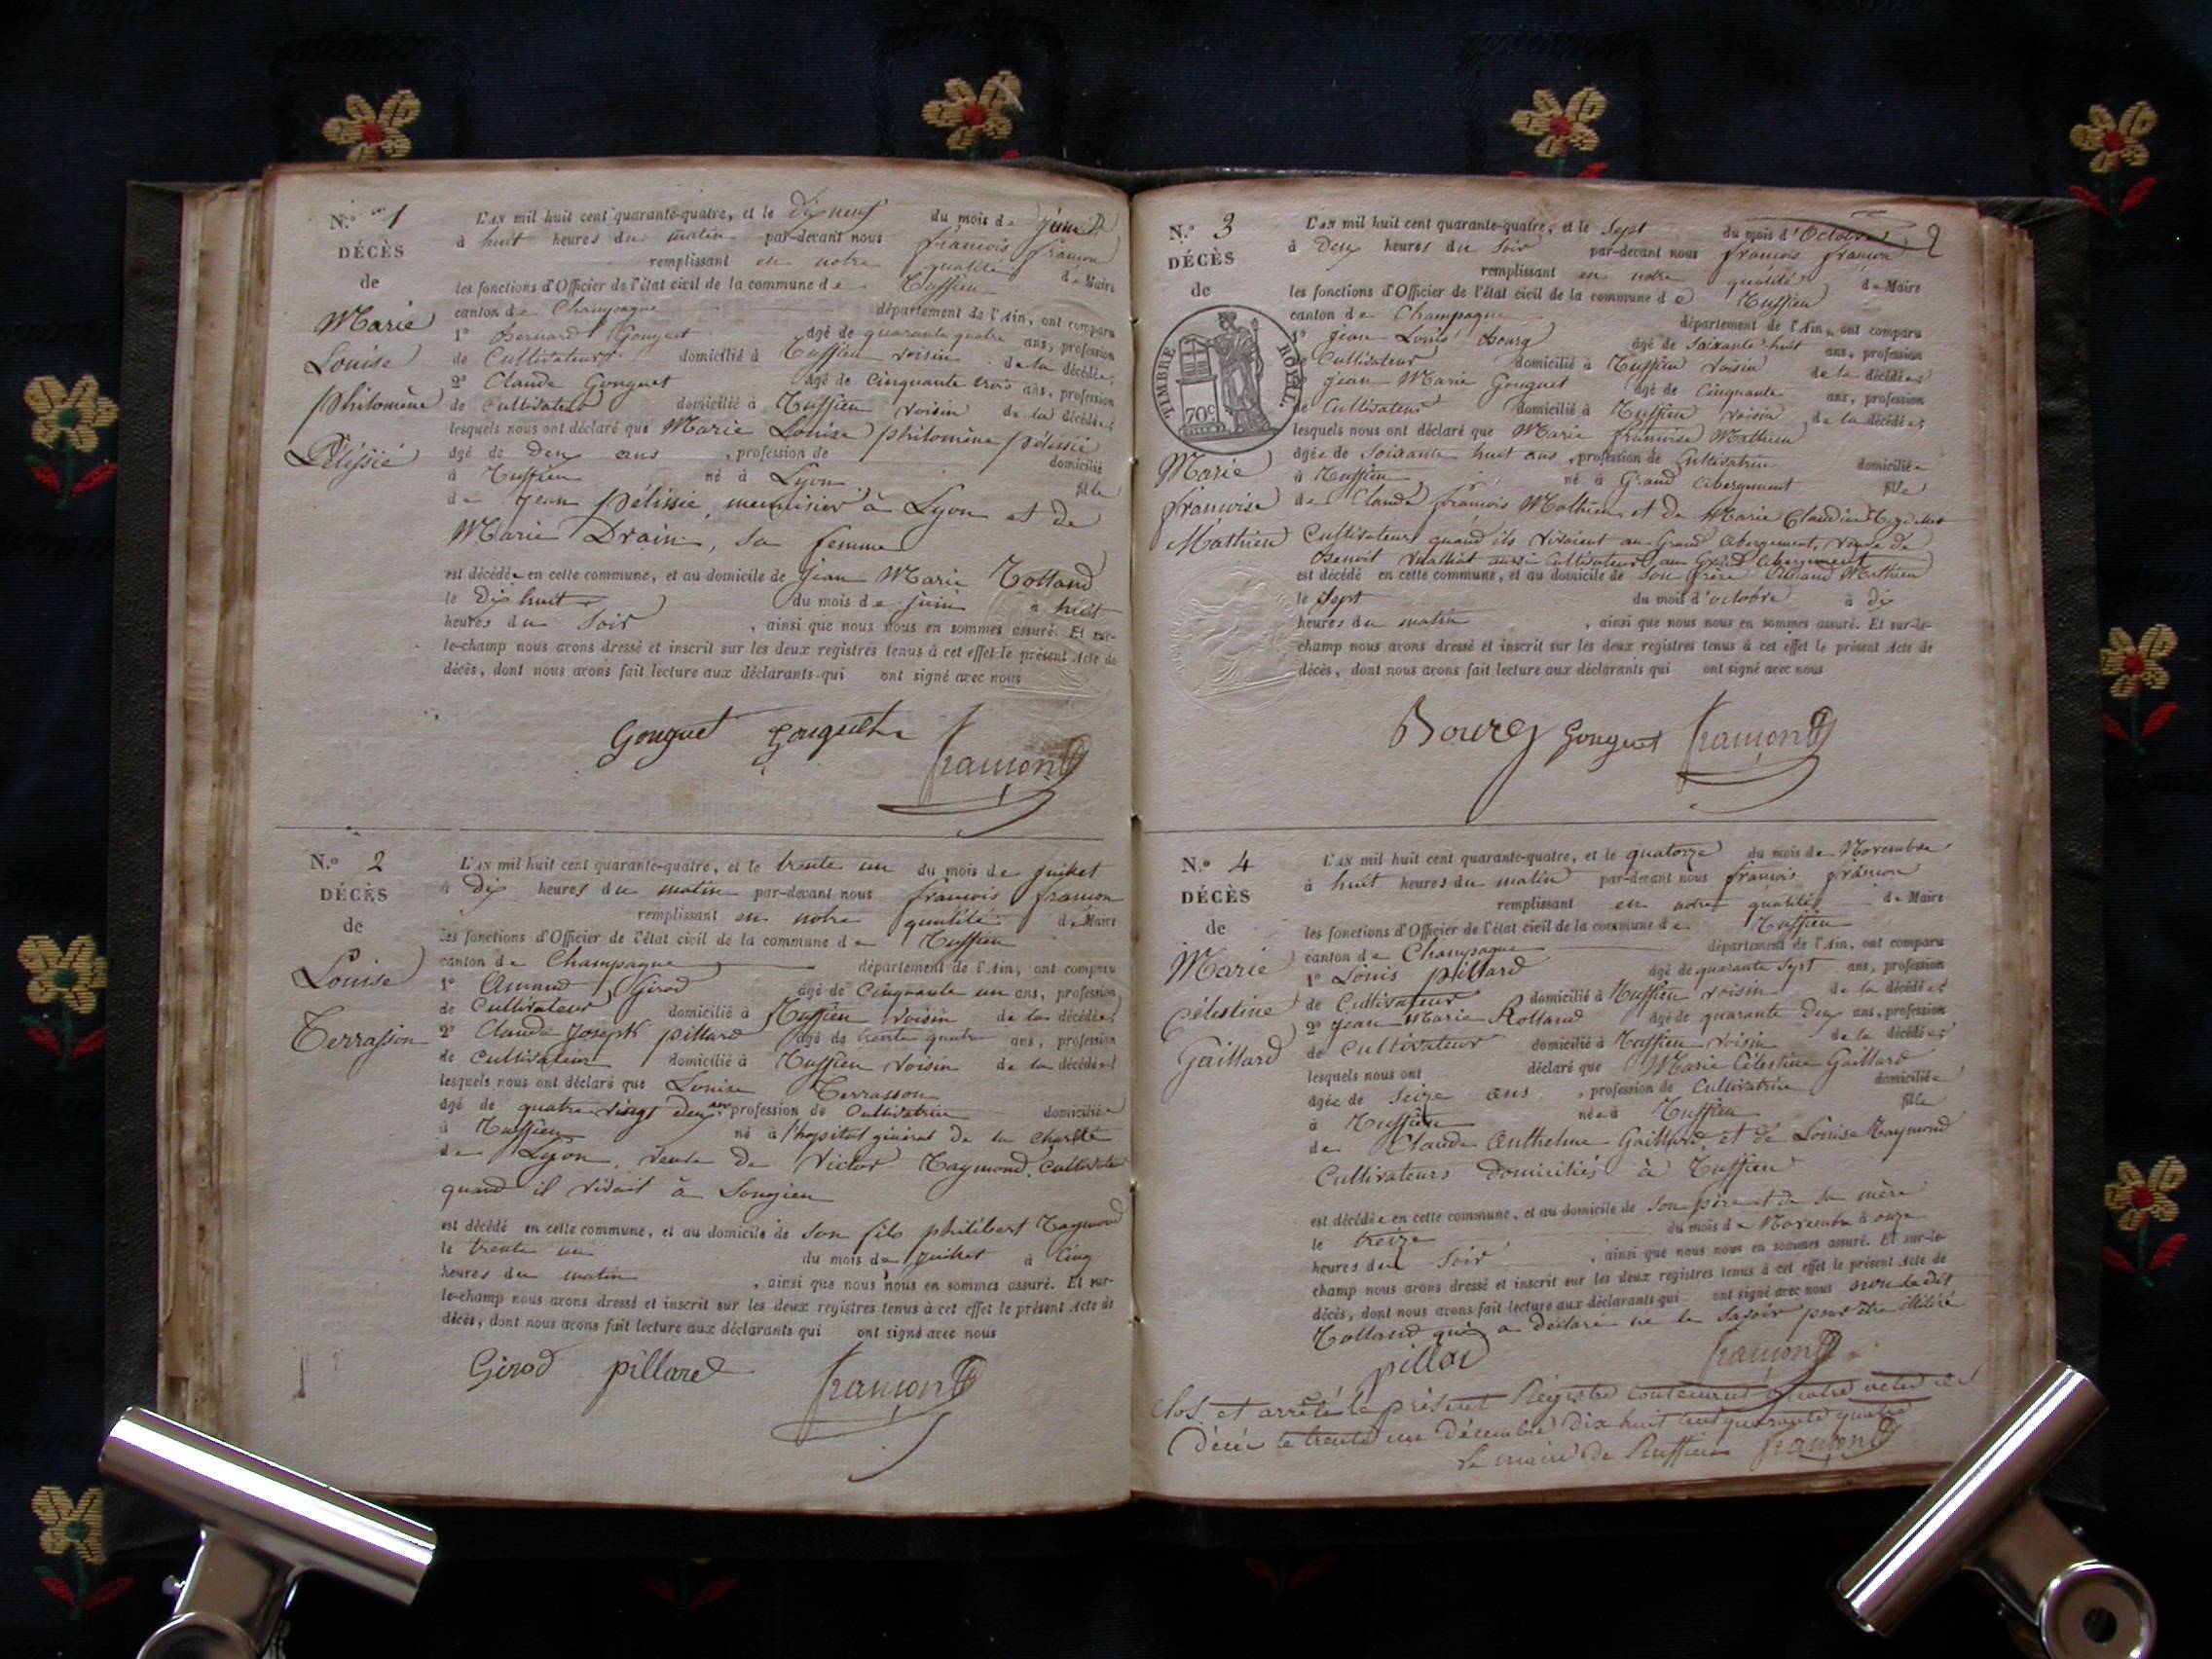 N.º 1
DÉCÈS
de
Marie
Louise
Philomène
Pélissié
L'AN mil huit cent quarante-quatre, et le dix neuf du mois de juin
à huit heures du matin par-devant nous françois framon
remplissant en notre qualité de Maire
les fonctions d'Officier de l'état civil de la commune de Ruffieu
canton de Champagne département de l'Ain, ont comparu
1º Bernard Gouguet âgé de quarante quatre ans, profession
de Cultivateur domicilié à Ruffieu voisin de la décédée,
2º Claude Gouguet âgé de cinquante trois ans, profession
de cultivateur domicilié à Ruffieu voisin de la décédée,
lesquels nous ont déclaré que Marie Louise philomène pélissié
âgé de deux ans , profession de domicilié
à Ruffieu né à Lyon fille
de jean pélissié, menuisier à Lyon et de
Marie Drain, sa femme
est décédée en cette commune, et au domicile de jean Marie Rolland
le dix huit du mois de juin à huit
heures du soir , ainsi que nous nous en sommes assuré. Et sur-
le-champ nous avons dressé et inscrit sur les deux registres tenus à cet effet le présent Acte de
décès, dont nous avons fait lecture aux déclarants qui ont signé avec nous
Gouguet Gouguet framond
N.º 2
DÉCÈS
de
Louise
Terrasson
L'AN mil huit cent quarante-quatre, et le trente un du mois de juillet
à dix heures du matin par-devant nous françois framon
remplissant en notre qualité de Maire
les fonctions d'Officier de l'état civil de la commune de Ruffieu
canton de Champagne département de l'Ain, ont comparu
1º Amand Girod âgé de cinquante un ans, profession
de cultivateur domicilié à Ruffieu voisin de la décédée,
2º Claude Joseph pillard âgé de trente quatre ans, profession
de cultivateur domicilié à Ruffieu voisin de la décédée,
lesquels nous ont déclaré que Louise Terrasson
âgé de quatre vingt deux ans profession de cultivatrice domiciliée
à Ruffieu né à l'hopital général de la charité
de Lyon, veuve de Victor Raymond, cultivateur
quand il vivait à Songieu
est décédé en cette commune, et au domicile de son fils philibert Raymond
le trente un du mois de juillet à cinq
heures du matin , ainsi que nous nous en sommes assuré. Et sur-
le-champ nous avons dressé et inscrit sur les deux registres tenus à cet effet le présent Acte de
décès, dont nous avons fait lecture aux déclarants qui ont signé avec nous
Girod pillard framond
2
N.º 3
DÉCÈS
de
TIMBRE ROYAL.
70 c
Marie
françoise
Mathieu
L'AN mil huit cent quarante-quatre, et le sept du mois d'Octobre
à deux heures du soir par-devant nous françois framon
remplissant en notre qualité de Maire
les fonctions d'Officier de l'état civil de la commune de Ruffieu
canton de Champagne département de l'Ain, ont comparu
1º jean Louis Bourg âgé de soixante huit ans, profession
de Cultivateur domicilié à Ruffieu voisin de la décédée,
jean Marie Gouguet âgé de cinquante ans, profession
de cultivateur domicilié à Ruffieu voisin de la décédée,
lesquels nous ont déclaré que Marie françoise Mathieu
âgée de soixante huit ans , profession de cultivatrice domiciliée
à Ruffieu né à Grand abergement fille
de Claude françois Mathieu et de Marie Claudine
Cultivateurs quand ils vivaient au Grand abergement, veuve de
Benoit aussi cultivateur au Grand abergement
est décédé en cette commune, et au domicile de son frère Mathieu
le sept du mois d'octobre à dix
heures du matin , ainsi que nous nous en sommes assuré. Et sur-le-
champ nous avons dressé et inscrit sur les deux registres tenus à cet effet le présent Acte de
décès, dont nous avons fait lecture aux déclarants qui ont signé avec nous
Bourg Gouguet framond
N.º 4
DÉCÈS
de
Marie
Célestine
Gaillard
L'AN mil huit cent quarante-quatre, et le quatorze du mois de Novembre
à huit heures du matin par-devant nous françois framon
remplissant en notre qualité de Maire
les fonctions d'Officier de l'état civil de la commune de Ruffieu
canton de Champagne département de l'Ain, ont comparu
1º Louis pillard âgé de quarante sept ans, profession
de Cultivateur domicilié à Ruffieu voisin de la décédée,
2º jean Marie Rolland âgé de quarante deux ans, profession
de cultivateur domicilié à Ruffieu voisin de la décédée,
lesquels nous ont déclaré que Marie Célestine Gaillard
âgée de seize ans , profession de cultivatrice domiciliée
à Ruffieu née à Ruffieu fille
de Claude Anthelme Gaillard et de Louise Raymond
Cultivateurs domiciliés à Ruffieu
est décédée en cette commune, et au domicile de son père et de sa mère
le treize du mois de Novembre à onze
heures du soir , ainsi que nous nous en sommes assuré. Et sur-le-
champ nous avons dressé et inscrit sur les deux registres tenus à cet effet le présent Acte de
décès, dont nous avons fait lecture aux déclarants qui ont signé avec nous non le dit
Rolland qui a déclaré ne le savoir pour être illitéré
pillard framond
Clos et arrêté le présent Régistre contenant quatre actes de
Décès le trente un Décembre Dix huit cent quarante quatre
Le maire de Ruffieu framond